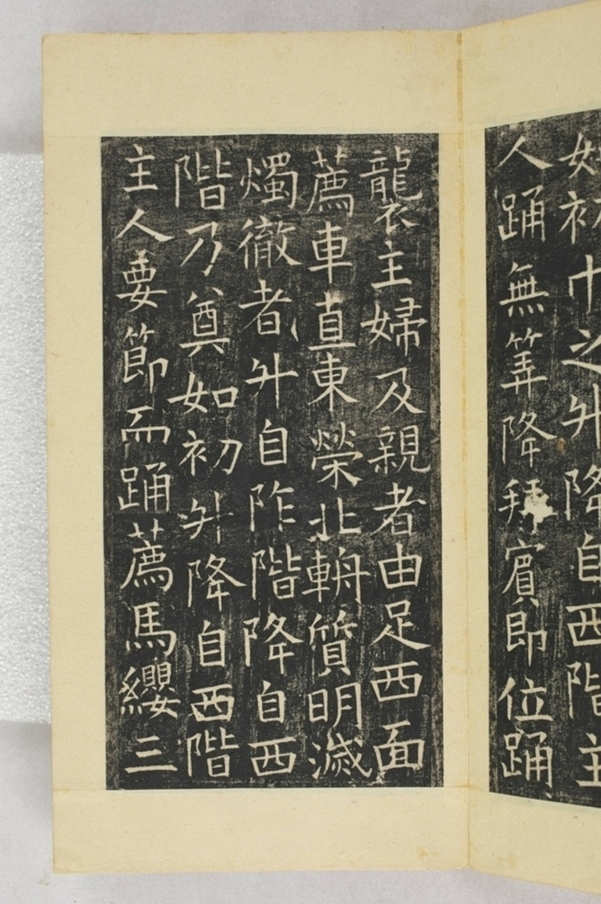 如初巾之升降自西階主
人踊無筭降拜賓即位踊
襲主婦及親者由足西面
薦車直東榮北輈質明滅
燭徹者升自阼階降自西
階乃奠如初升降自西階
主人要節而踊薦馬纓三